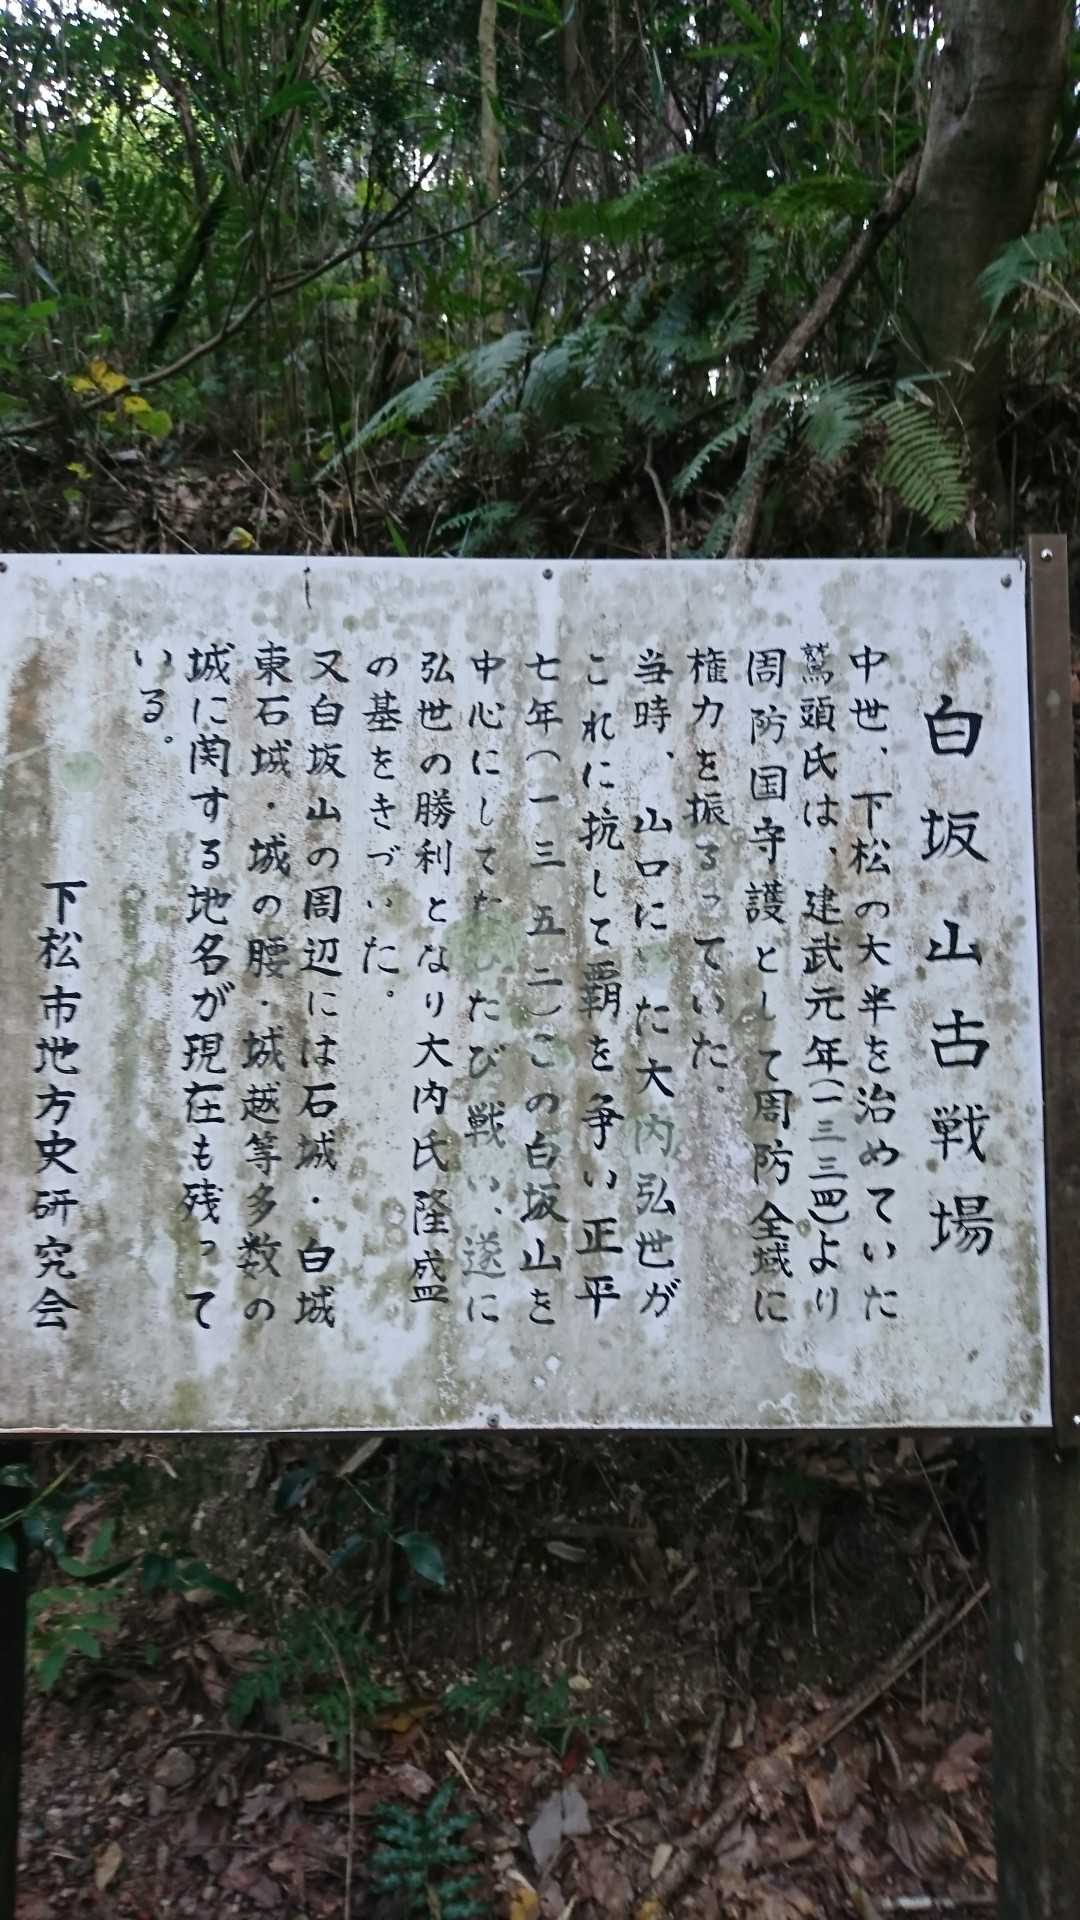 白坂山古戦場
中世、下松の大半を治めていた
鷲頭氏は、建武元年(一三三四)より
周防国守護として周防全域に
権力を振るっていた。
当時、山口にいた大内弘世が
これに抗して覇を争い正平
七年(一三五二)この白坂山を
中心にしてたびたび戦い、遂に
弘世の勝利となり大内氏隆盛
の基をきづいた。
又白坂山の周辺には石城・白城
東石城・城の腰・城越等多数の
城に関する地名が現在も残って
いる。
下松市地方史研究会